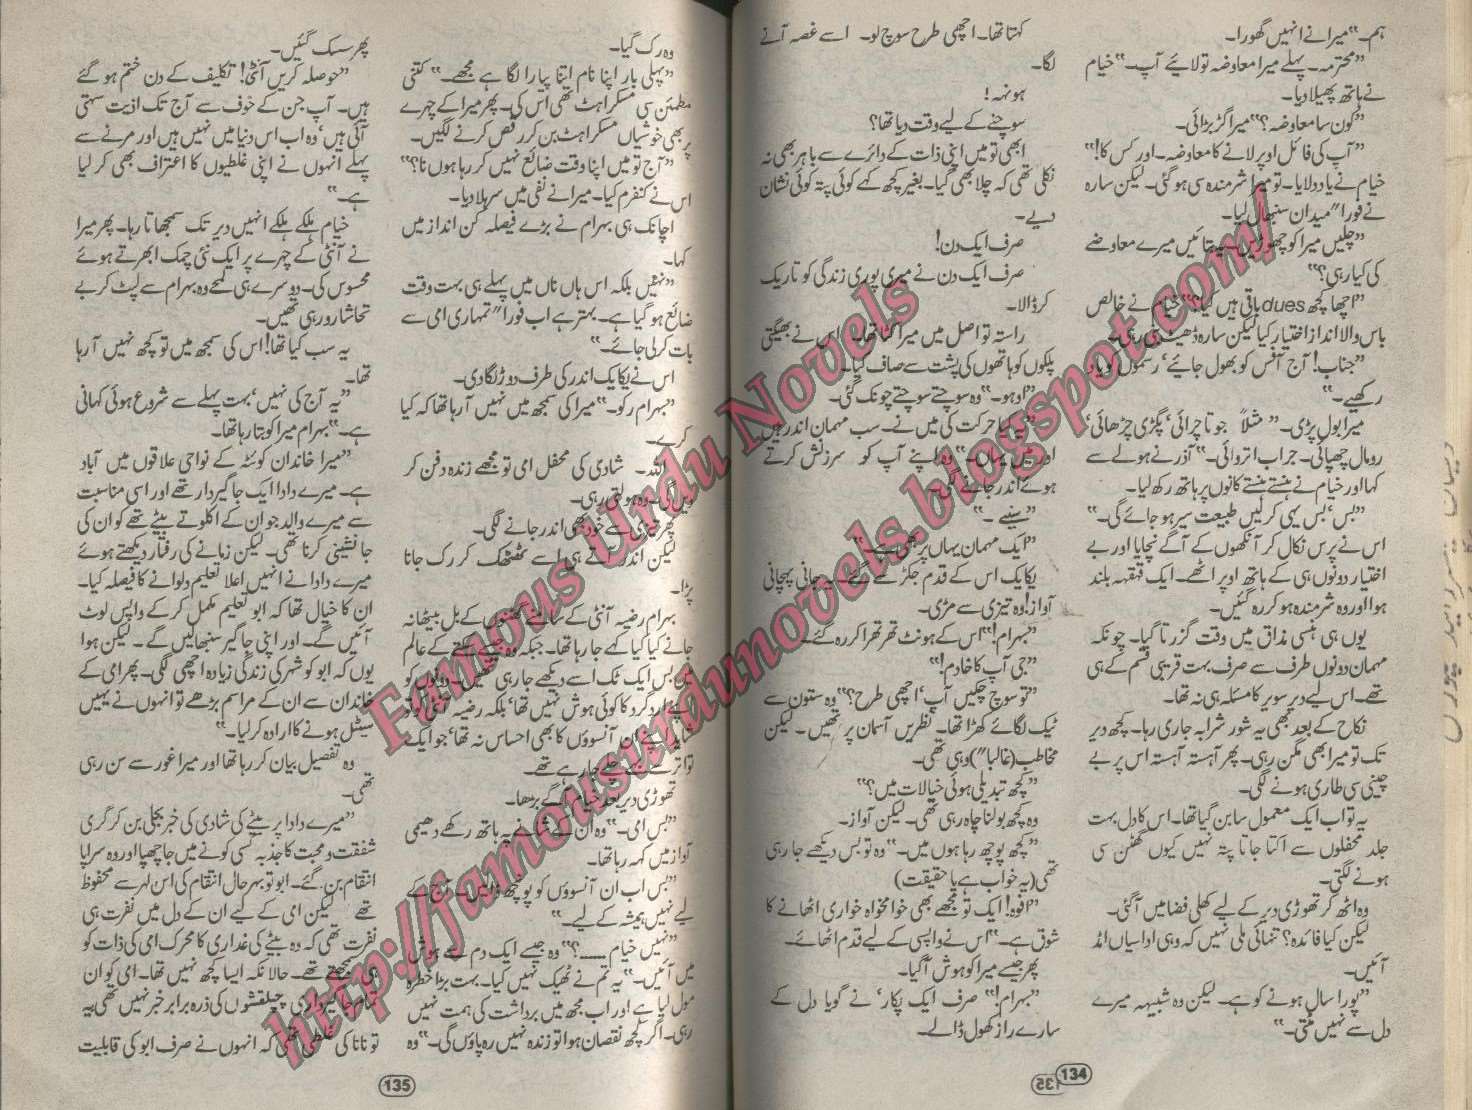 ہم۔“ میرا نے انہیں گھورا۔
”محترمہ۔ پہلے میرا معاوضہ تو لائیے آپ۔“ خیام
نے ہاتھ پھیلا دیا۔
”کون سا معاوضہ؟“ میرا گڑبڑائی۔
”آپ کی فائل اوپر لانے کا معاوضہ۔ اور کس کا!“
خیام نے یاد دلایا۔ تو میرا شرمندہ سی ہو گئی۔ لیکن سارہ
نے فوراً ”میدان سنبھال لیا۔
”چلیں میرا کو چھوڑیں۔ یہ بتائیں میرے معاوضے
کی کیا رہی؟“
”اچھا کچھ dues باقی ہیں کیا؟“ خیام نے خالص
باس والا انداز اختیار کیا لیکن سارہ ڈھیٹ بنی رہی۔
”جناب! آج آفس کو بھول جائیے‘ رسموں کو یاد
رکھیے۔“
میرا بول پڑی۔ ”مثلاً جوتا چرائی‘ پگڑی چڑھائی‘
رومال چھپائی۔ جراب اتروائی۔“ آذر نے ہولے سے
کہا اور خیام نے ہنستے ہنستے کانوں پر ہاتھ رکھ لیا۔
”بس‘ بس یہی کر لیں طبیعت سیر ہو جائے گی۔“
اس نے پرس نکال کر آنکھوں کے آگے نچایا اور بے
اختیار دونوں ہی کے ہاتھ اوپر اٹھے۔ ایک قہقہہ بلند
ہوا اور وہ شرمندہ ہو کر رہ گئیں۔
یوں ہی ہنسی مذاق میں وقت گزرتا گیا۔ چونکہ
مہمان دونوں طرف سے صرف بہت قریبی قسم کے ہی
تھے۔ اس لیے دیر سویر کا مسئلہ ہی نہ تھا۔
نکاح کے بعد بھی یہ شور شرابہ جاری رہا۔ کچھ دیر
تک تو میرا بھی مگن رہی۔ پھر آہستہ آہستہ اس پر بے
چینی سی طاری ہونے لگی۔
یہ تو اب ایک معمول سا بن گیا تھا۔ اس کا دل بہت
جلد محفلوں سے اکتا جاتا پتہ نہیں کیوں گھٹن سی
ہونے لگتی۔
وہ اٹھ کر تھوڑی دیر کے لیے کھلی فضا میں آ گئی۔
لیکن کیا فائدہ؟ تنہائی ملی نہیں کہ وہی اداسیاں امڈ
آئیں۔
”پورا سال ہونے کو ہے۔ لیکن وہ شبیہہ میرے
دل سے نہیں مٹتی۔“
کہتا تھا۔ اچھی طرح سوچ لو۔ اسے غصہ آنے
لگا۔
ہونہہ!
سوچنے کے لیے وقت دیا تھا؟
ابھی تو میں اپنی ذات کے دائرے سے باہر بھی نہ
نکلی تھی کہ چلا بھی گیا۔ بغیر کچھ کہے کوئی پتہ کوئی نشان
دیے۔
صرف ایک دن!
صرف ایک دن نے میری پوری زندگی کو تاریک
کر ڈالا۔
راستہ تو اصل میں میرا کٹا تھا۔ اس نے بھیگتی
پلکوں کو ہاتھوں کی پشت سے صاف کیا۔
”اوہو۔“ وہ سوچتے سوچتے چونک گئی۔
”یہ کیا حرکت کی میں نے۔ سب مہمان اندر ہیں
اور میں یہاں۔“ وہ اپنے آپ کو سرزنش کرتے
ہوئے اندر جانے لگی۔
”سنیے۔“
”ایک مہمان یہاں پر بھی ہے۔“
یکایک اس کے قدم جکڑے گئے۔ یہ جانی پہچانی
آواز! وہ تیزی سے مڑی۔
”بہرام!“ اس کے ہونٹ تھرتھرا کر رہ گئے۔
”جی آپ کا خادم!“
”تو سوچ چکیں آپ‘ اچھی طرح؟“ وہ ستون سے
ٹیک لگائے کھڑا تھا۔ نظریں آسمان پر تھیں۔ لیکن
مخاطب (غالباً) وہی تھی۔
”کچھ تبدیلی ہوئی خیالات میں؟“
وہ کچھ بولنا چاہ رہی تھی۔ لیکن آواز۔
”کچھ پوچھ رہا ہوں میں۔“ وہ تو بس دیکھے جا رہی
تھی (یہ خواب ہے یا حقیقت)
”افوہ! ایک تو مجھے بھی خوامخواہ خواری اٹھانے کا
شوق ہے۔“ اس نے واپسی کے لیے قدم اٹھائے۔
پھر جیسے میرا کو ہوش آ گیا۔
”بہرام!“ صرف ایک پکار‘ نے گویا دل کے
سارے راز کھول ڈالے۔
134
135
وہ رک گیا۔
”پہلی بار اپنا نام اتنا پیارا لگا ہے مجھے۔“ کتنی
مطمئن سی مسکراہٹ تھی اس کی۔ پھر میرا کے چہرے
پر بھی خوشیاں مسکراہٹ بن کر رقص کرنے لگیں۔
”آج تو میں اپنا وقت ضائع نہیں کر رہا ہوں نا؟“
اس نے کنفرم کیا۔ میرا نے نفی میں سر ہلا دیا۔
اچانک ہی بہرام نے بڑے فیصلہ کن انداز میں
کہا۔
”نہیں بلکہ اس ہاں ناں میں پہلے ہی بہت وقت
ضائع ہو گیا ہے۔ بہتر ہے اب فوراً ”تمہاری امی سے
بات کر لی جائے۔“
اس نے یکایک اندر کی طرف دوڑ لگا دی۔
”بہرام رکو۔“ میرا کی سمجھ میں نہیں آ رہا تھا کہ کیا
کرے۔
اللہ۔ شادی کی محفل امی تو مجھے زندہ دفن کر
دیں گی۔ وہ ہولتی رہی۔
پھر تیزی سے خود بھی اندر جانے لگی۔
لیکن اندر آتے ہی اسے ٹھٹھک کر رک جانا
پڑا۔
بہرام رضیہ آنٹی کے سامنے گھٹنوں کے بل بیٹھا نہ
جانے کیا کیا کہے جا رہا تھا۔ جبکہ وہ جیسے سکتے کے عالم
میں بس ایک ٹک اسے دیکھے جا رہی تھیں۔ دونوں کو
اپنے ارد گرد کا کوئی ہوش نہیں تھا‘ بلکہ رضیہ آنٹی کو تو
شاید اپنے ان آنسوؤں کا بھی احساس نہ تھا‘ جو ایک
تواتر سے بہے چلے جا رہے تھے۔
تھوڑی دیر بعد خیام آگے بڑھا۔
”بس امی۔“ وہ ان کے شانے پہ ہاتھ رکھے دھیمی
آواز میں کہہ رہا تھا۔
”بس اب ان آنسوؤں کو پونچھ ڈالیں۔ آج کے
لیے نہیں ہمیشہ کے لیے۔“
”نہیں خیام .....؟“ وہ جیسے ایک دم سے ہوش
میں آئیں۔ ”یہ تم نے ٹھیک نہیں کیا۔ بہت بڑا خطرہ
مول لیا ہے اور اب مجھ میں برداشت کی ہمت نہیں
رہی۔ اگر کچھ نقصان ہوا تو زندہ نہیں رہ پاؤں گی۔“ وہ
پھر سسک گئیں۔
”حوصلہ کریں آنٹی! تکلیف کے دن ختم ہو گئے
ہیں۔ آپ جن کے خوف سے آج تک اذیت سہتی
آئی ہیں‘ وہ اب اس دنیا میں نہیں ہیں اور مرنے سے
پہلے انہوں نے اپنی غلطیوں کا اعتراف بھی کر لیا
ہے۔“
خیام ہلکے ہلکے انہیں دیر تک سمجھاتا رہا۔ پھر میرا
نے آنٹی کے چہرے پر ایک نئی چمک ابھرتے ہوئے
محسوس کی۔ دوسرے ہی لمحے وہ بہرام سے لپٹ کر بے
تحاشا رو رہی تھیں۔
یہ سب کیا تھا! اس کی سمجھ میں تو کچھ نہیں آ رہا
تھا۔
”یہ آج کی نہیں‘ بہت پہلے سے شروع ہوئی کہانی
ہے۔“ بہرام میرا کو بتا رہا تھا۔
”میرا خاندان کوئٹہ کے نواحی علاقوں میں آباد
ہے۔ میرے دادا ایک جاگیردار تھے اور اسی مناسبت
سے میرے والد جو ان کے اکلوتے بیٹے تھے کو ان کی
جانشینی کرنا تھی۔ لیکن زمانے کی رفتار دیکھتے ہوئے
میرے دادا نے انہیں اعلا تعلیم دلوانے کا فیصلہ کیا۔
ان کا خیال تھا کہ ابو تعلیم مکمل کر کے واپس لوٹ
آئیں گے۔ اور اپنی جاگیر سنبھالیں گے۔ لیکن ہوا
یوں کہ ابو کو شہر کی زندگی زیادہ اچھی لگی۔ پھر امی کے
خاندان سے ان کے مراسم بڑھے تو انہوں نے یہیں
سیٹل ہونے کا ارادہ کر لیا۔“
وہ تفصیل بیان کر رہا تھا اور میرا غور سے سن رہی
تھی۔
”میرے دادا پر بیٹے کی شادی کی خبر بجلی بن کر گری
شفقت و محبت کا جذبہ کسی کونے میں جا چھپا اور وہ سراپا
انتقام بن گئے۔ ابو تو بہرحال انتقام کی اس لہر سے محفوظ
تھے لیکن امی کے لیے ان کے دل میں نفرت ہی
نفرت تھی کہ وہ بیٹے کی غداری کا محرک امی کی ذات کو
ہی سمجھتے تھے۔ حالانکہ ایسا کچھ نہیں تھا۔ امی کو ان
تمام جاگیرداری چپقلشوں کی ذرہ برابر خبر نہیں تھی یہ
تو نانا کی غلطی تھی کہ انہوں نے صرف ابو کی قابلیت
135
Famous Urdu Novels
http://famousurdunovels.blogspot.com/